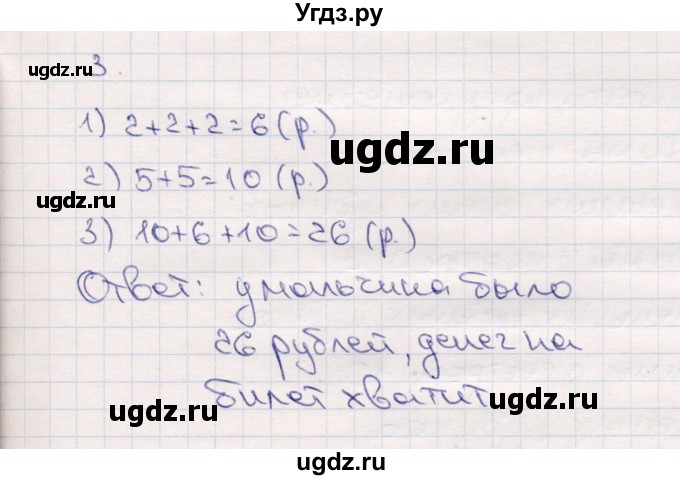 Угдз.ру
ugdz.ru 3.
1) 2+2+2=6 (р.)
ugdz.ru
2) 5+5=10 (р.)
ugdz.ru
3) 10+6+10=26 (р.)
Ответ: у мальчика было
26 рублей, денег на
билет хватит
ugdz.ru
ugdz.ru
ugdz.ru